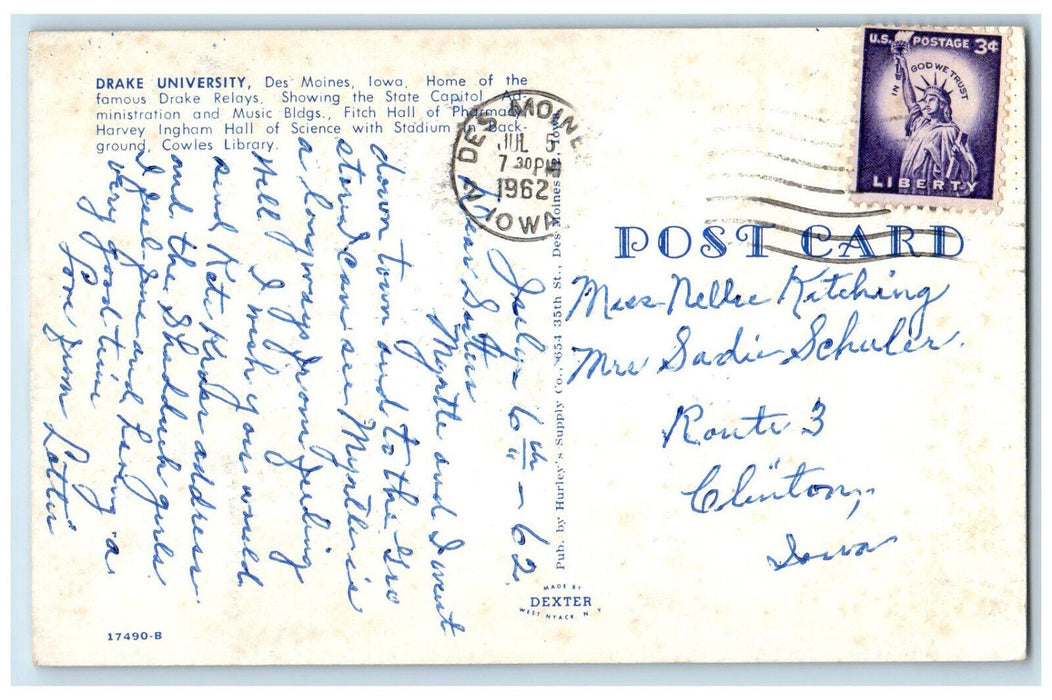 DRAKE UNIVERSITY, Des Moines, Iowa. Home of the
famous Drake Relays. Showing the State Capitol, Ad-
ministration and Music Bldgs., Fitch Hall of Pharmacy,
Harvey Ingham Hall of Science with Stadium in back-
ground, Cowles Library.
DES MOINES
JUL 5
7 30 PM
1962
IOWA
U.S. POSTAGE 3¢
IN GOD WE TRUST
LIBERTY
POST CARD
Miss Nellie Kitching
Mrs Sadie Schuler
Route 3
Clinton,
Iowa
July 6th - 62
Dear Sisters
Myrtle and I went
down town and to the
store I can see Myrtle is
a long ways from feeling
well I wish you would
send Kate address
and the Shadduck girls
I feel fine and having a
very good time
Love from Lottie
Pub. by Hurley's Supply Co., 654 35th St., Des Moines, Iowa
MADE BY
DEXTER
WEST NYACK N Y
17490-B